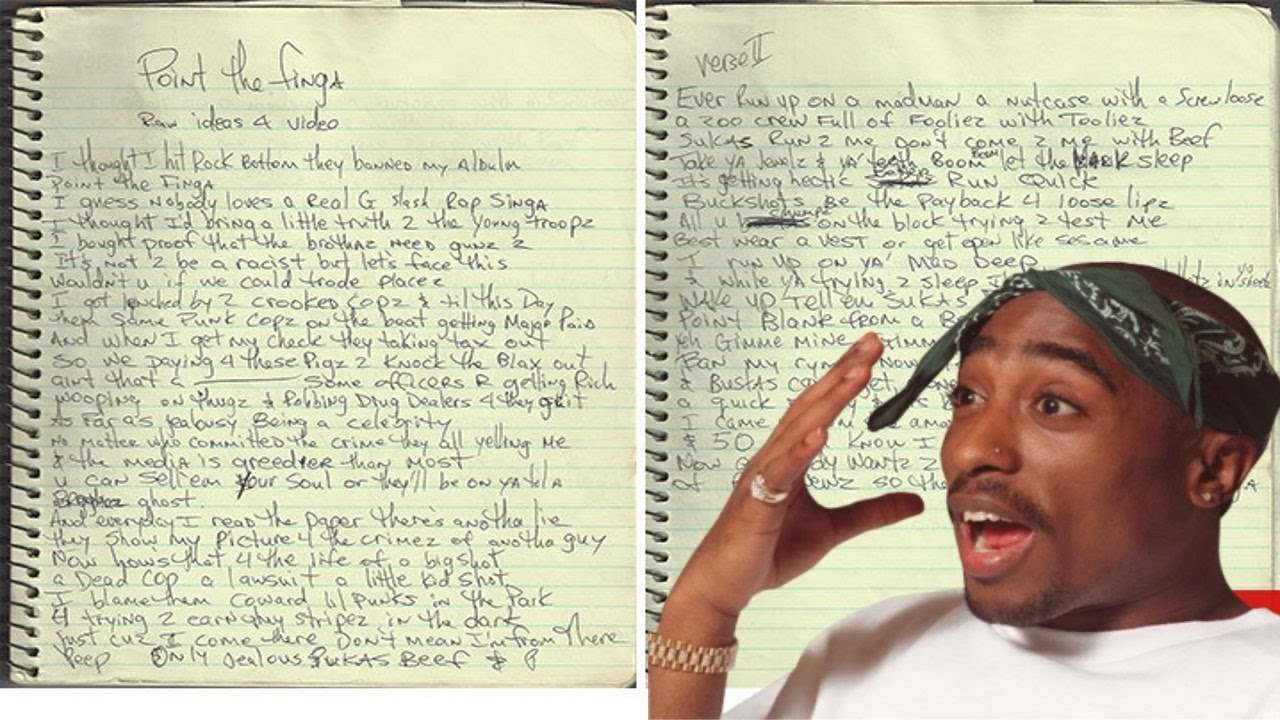 Point the finga
Raw ideas 4 video
I thought I hit Rock Bottom they banned my Album
Point the Finga
I guess Nobody loves a Real G slash Rap Singa
I thought I'd bring a little truth 2 the young troopz
I bought proof that the brothaz need gunz 2
It's not 2 be a racist but let's face this
wouldn't u if we could trade placez
I got lynched by 2 crooked copz & til this Day
them same Punk Copz on the beat getting Major Paid
And when I get my check they taking tax out
So we Paying 4 these Pigz 2 Knock the Blax out
aint that a Some officers R getting Rich
wooping on thugz & Robbing Drug Dealers 4 they
As far as jealousy Being a celebrity
No matter who committed the crime they all yelling me
& the media is greedier than most
u can sell em your Soul or they'll be on ya
ghost.
And everyday I read the paper there's anotha lie
they show my Picture 4 the crimez of anotha guy
Now hows that 4 the life of a bigshot
a Dead Cop a lawsuit a little kid shot
I blame them coward lil punks in the Park
4 trying 2 earn my stripez in the dark
just cuz I come there Don't mean I'm from there
Peep Only Jealous Sukas Beef &
verse II
Ever Run up on a madman a nutcase with a Screw loose
a zoo crew Full of Fooliez with Tooliez
Sukas Run 2 me don't come 2 me with Beef
Take ya Jewlz & ya' teeth Boom Boom let the sleep
It's getting hectic Run Quick
Buckshots Be the Payback 4 loose lipz
All u chumpz on the block trying 2 test me
Best wear a vest or get open like sesame
I run up on ya' Mad Deep
& while ya trying 2 sleep in yo sheetz
Wake up Tell em Sukas
Point Blank from a
yeh Gimme mine
Ban my rymz now
& Bustas can get
a quick
I came
& 50 Know I
Now Wantz 2
of so the